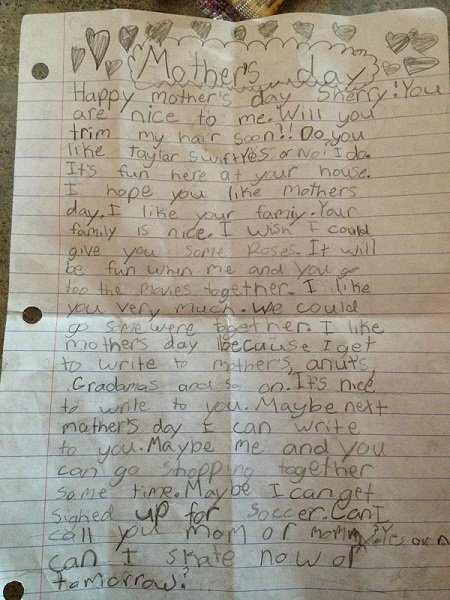 Mother's day
Happy mother's day Sherry! You
are nice to me. Will you
trim my hair soon!! Do you
like taylar swift Yes or No? I do.
It's fun here at your house.
I hope you like mothers
day. I like your famiy. Your
family is nice. I wish I could
give you some Roses. It will
be fun when me and you go
too the movies together. I like
you very much. We could
go some were together. I like
mothers day because I get
to write to mother's, anuts,
Gradamas and so on. It's nice
to write to you. Maybe next
mother's day I can write
to you. Maybe me and you
can go shopping together
some time. Maybe I can get
sighed up for soccer. Can I
call you mom or mommy? Yes or n
can I skate now or
tomarrow?